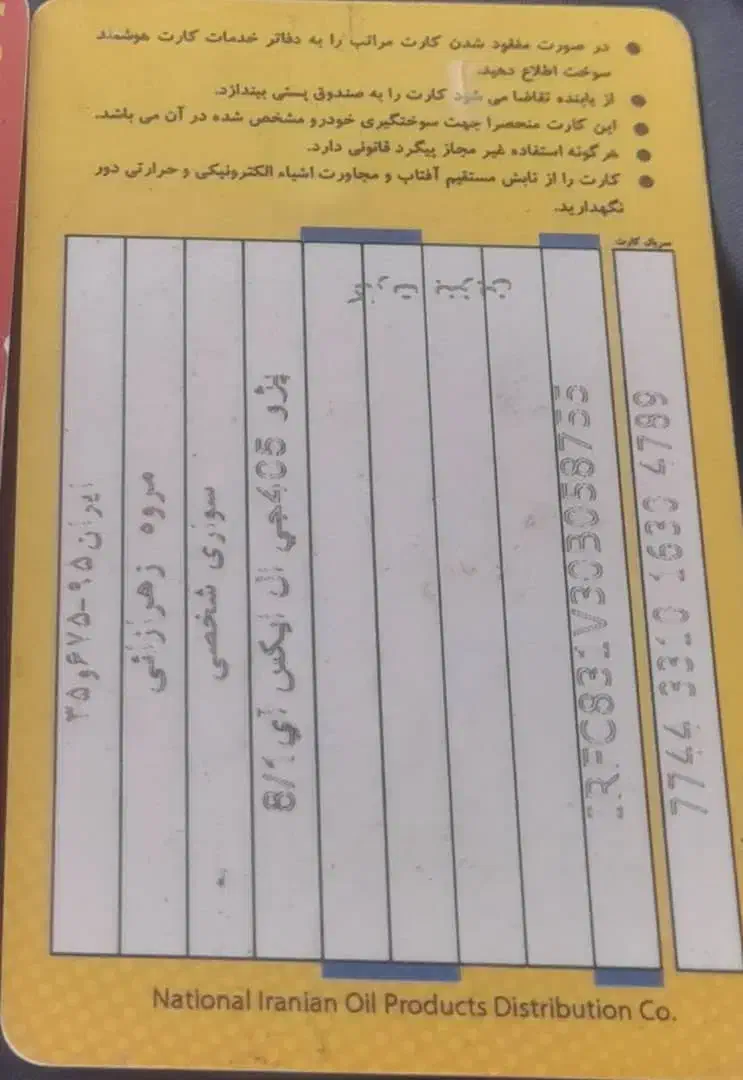 در صورت مفقود شدن کارت مراتب را به دفاتر خدمات کارت هوشمند
سوخت اطلاع دهید.
از یابنده تقاضا می شود کارت را به صندوق پستی بیندازد.
این کارت منحصرا جهت سوختگیری خودرو مشخص شده در آن می باشد.
هرگونه استفاده غیر مجاز پیگرد قانونی دارد.
کارت را از تابش مستقیم آفتاب و مجاورت اشیاء الکترونیکی و حرارتی دور
نگهدارید.
سریال کارت
ایران ۹۵-۶۷۵و۳۵
مروه زهرازائی
سواری شخصی
پژو 405جی ال ایکس آی 8/1
7744 3310 1630 4789
National Iranian Oil Products Distribution Co.